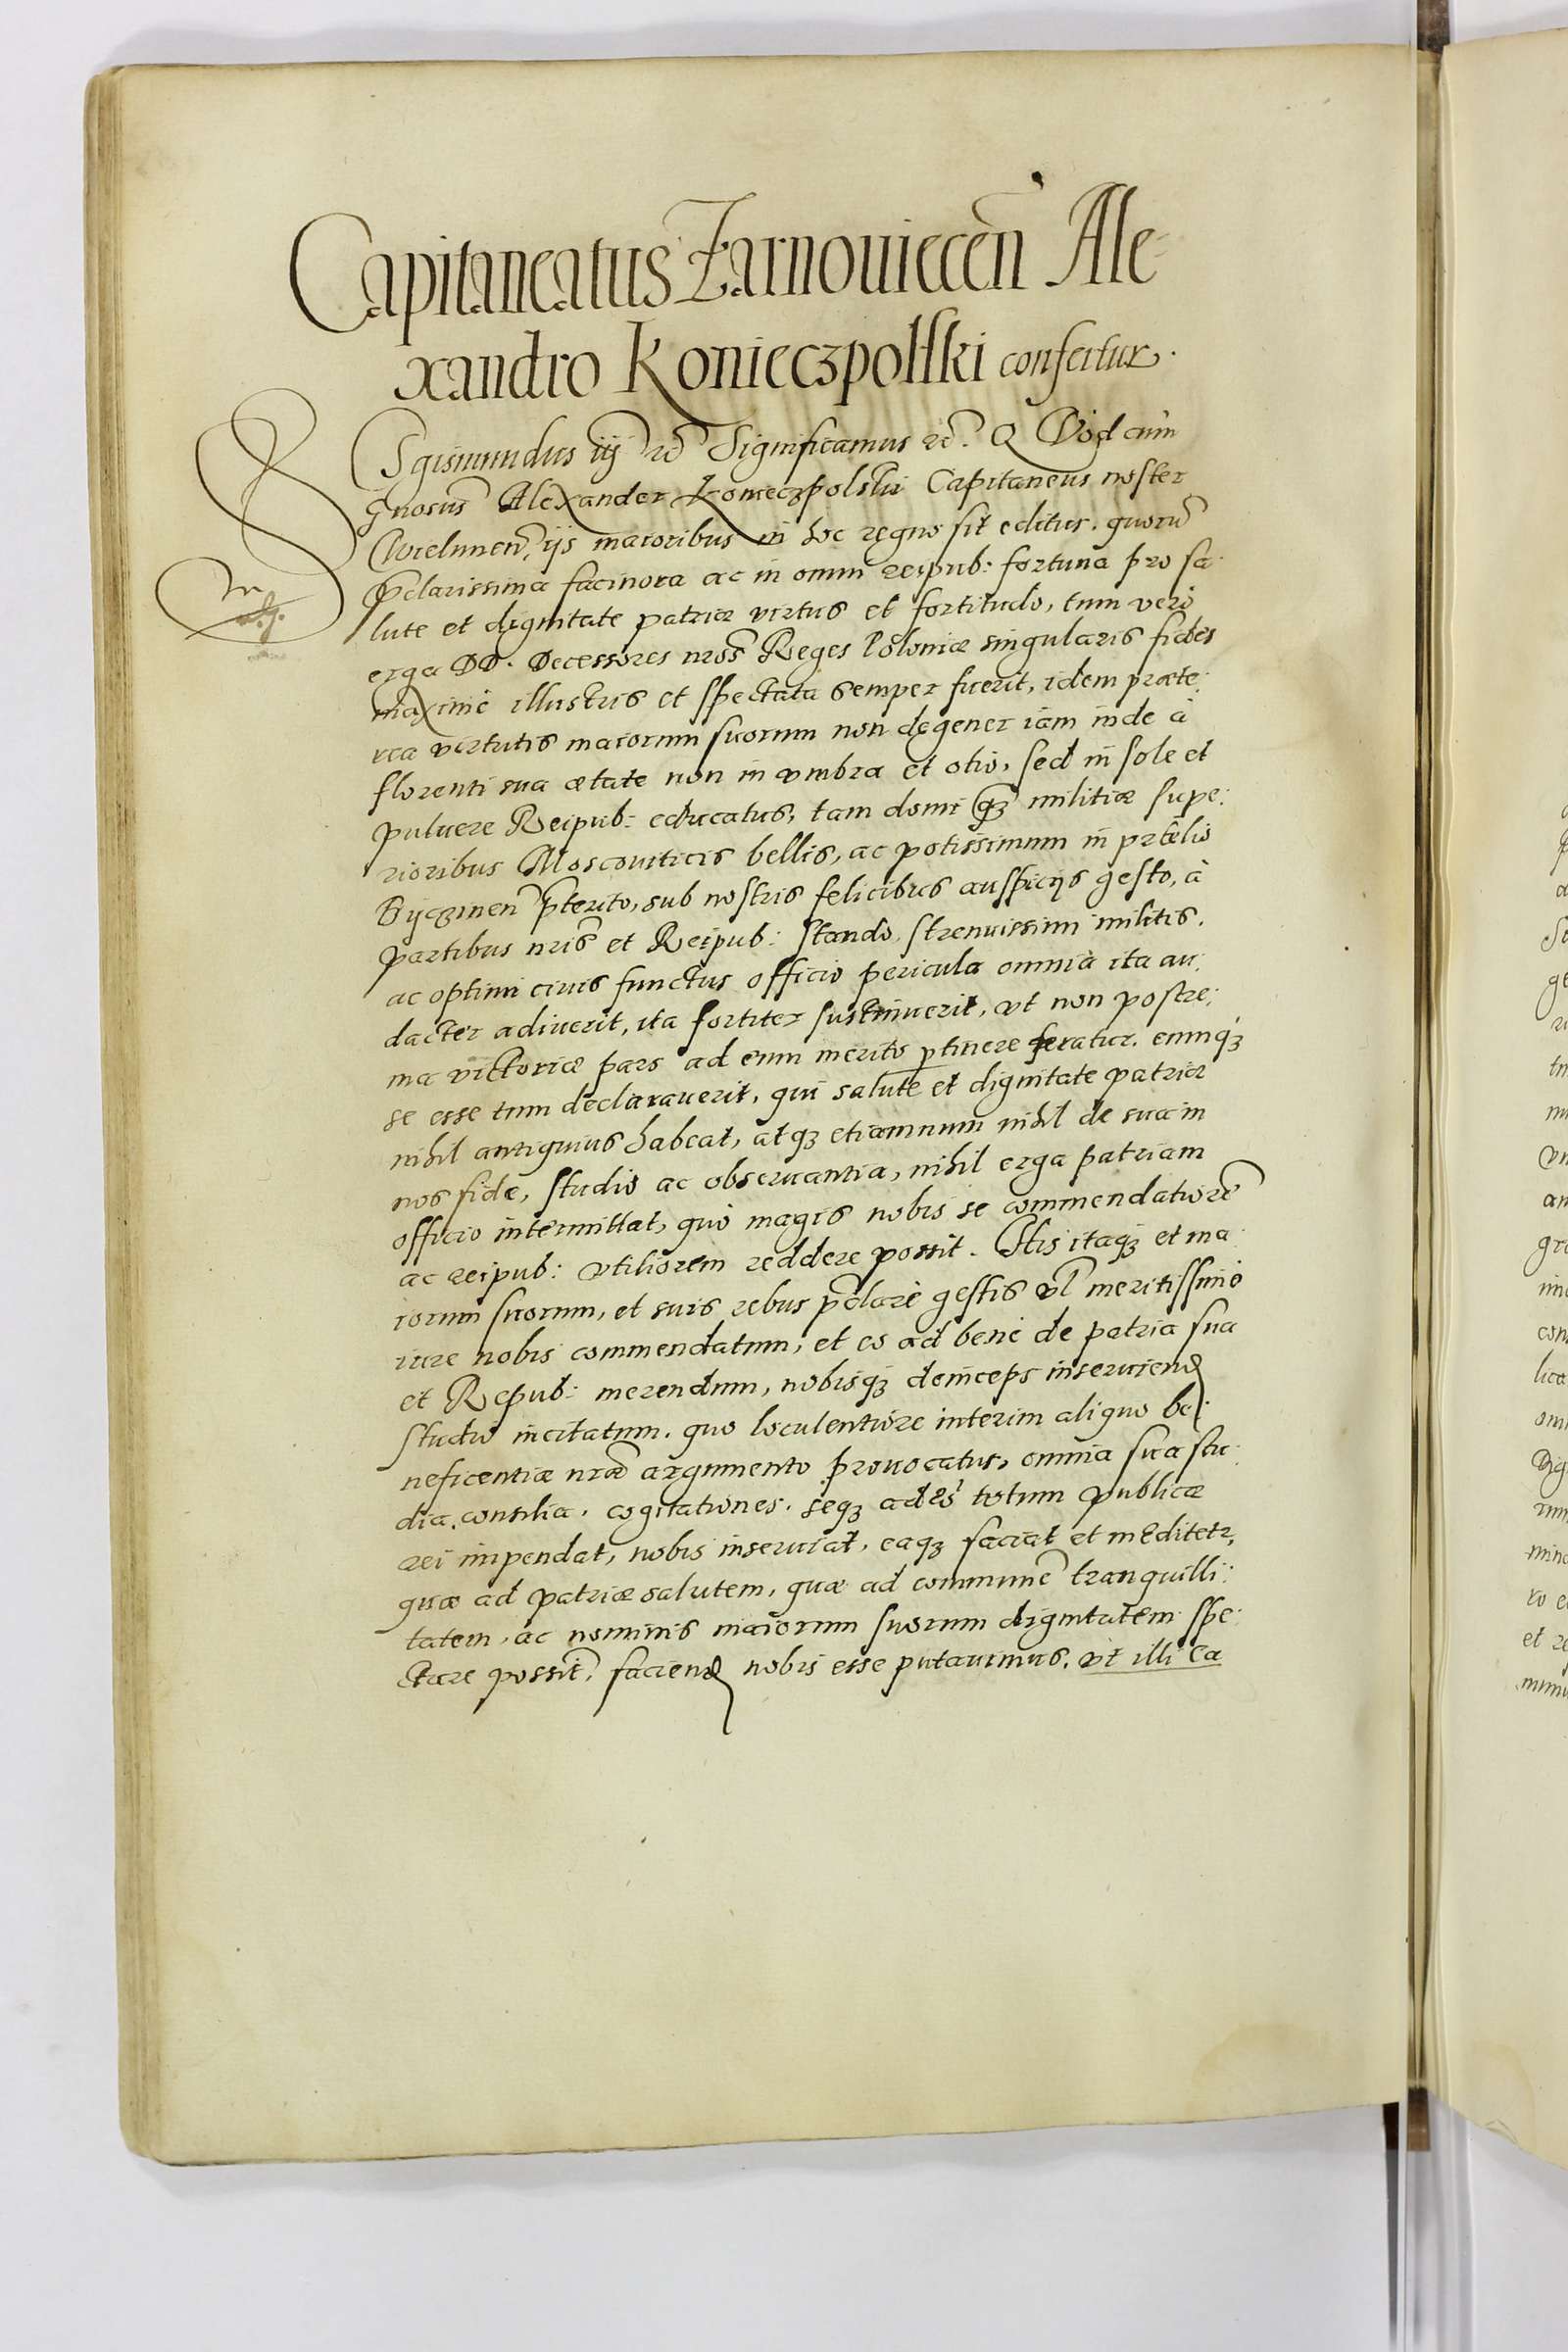 Capitaneatus Zarnouiecen̄ Ale-
xandro Konieczpolski confertur.
Sigismundus iij rc̄ Significamus rc̄. Quod cùm
gnosus Alexander Koniecpolski Capitaneus noster
Wielunen̄, ijs maioribus in hoc regno sit editus, quorū
p̄clarissima facinora ac in omni reipub: fortuna pro sa:
lute et dignitate patriæ virtus et fortitudo, tum verò
erga DD. Decessores nros̄ Reges Poloniæ singularis fides
maximè illustris et spectata semper fuerit, idem præte:
rea virtutis maiorum suorum non degener iam inde à
florenti sua ætate non in vmbra et otio, sed in sole et
puluere Reipub: educatus, tam domi q̄ȝ militiæ supe:
rioribus Moscouiticis bellis, ac potissimum in prælio
Byczinen̄ p̄terito, sub nostris felicibus auspicijs gesto, à
partibus nris̄ et Reipub: stando, strenuissimi militis,
ac optimi ciuis functus officio pericula omnia ita au:
dacter adiuerit, ita fortiter sustinuerit, vt non postre:
ma victoriæ pars ad eum meritò ptinere feratur, eumqȝ
se esse tum declarauerit, qui salute et dignitate patriæ
nihil antiquius habeat, atqȝ etiamnum nihil de sua in
nos fide, studio ac obseruantia, nihil erga patriam
officio intermittat, quò magis nobis se commendatiorē
ac reipub: vtiliorem reddere possit. His itaqȝ et ma:
iorum suorum, et suis rebus p̄clarè gestis vl meritissimo
iure nobis commendatum, et eo ad benè de patria sua
et Repub: merendum, nobisqȝ deinceps inseruiend
studio incitatum, quo loculentiore interim aliquo be:
neficentiæ nrǣ argumento prouocatus, omnia sua stu:
dia, consilia, cogitationes, seqȝ adeò totum publicæ
rei impendat, nobis inseruiat, eaqȝ faciat et meditetr,
quæ ad patriæ salutem, quæ ad communē tranquilli:
tatem, ac nominis maiorum suorum dignitatem spe:
ctare possit, faciend nobis esse putauimus, vt illi Ca